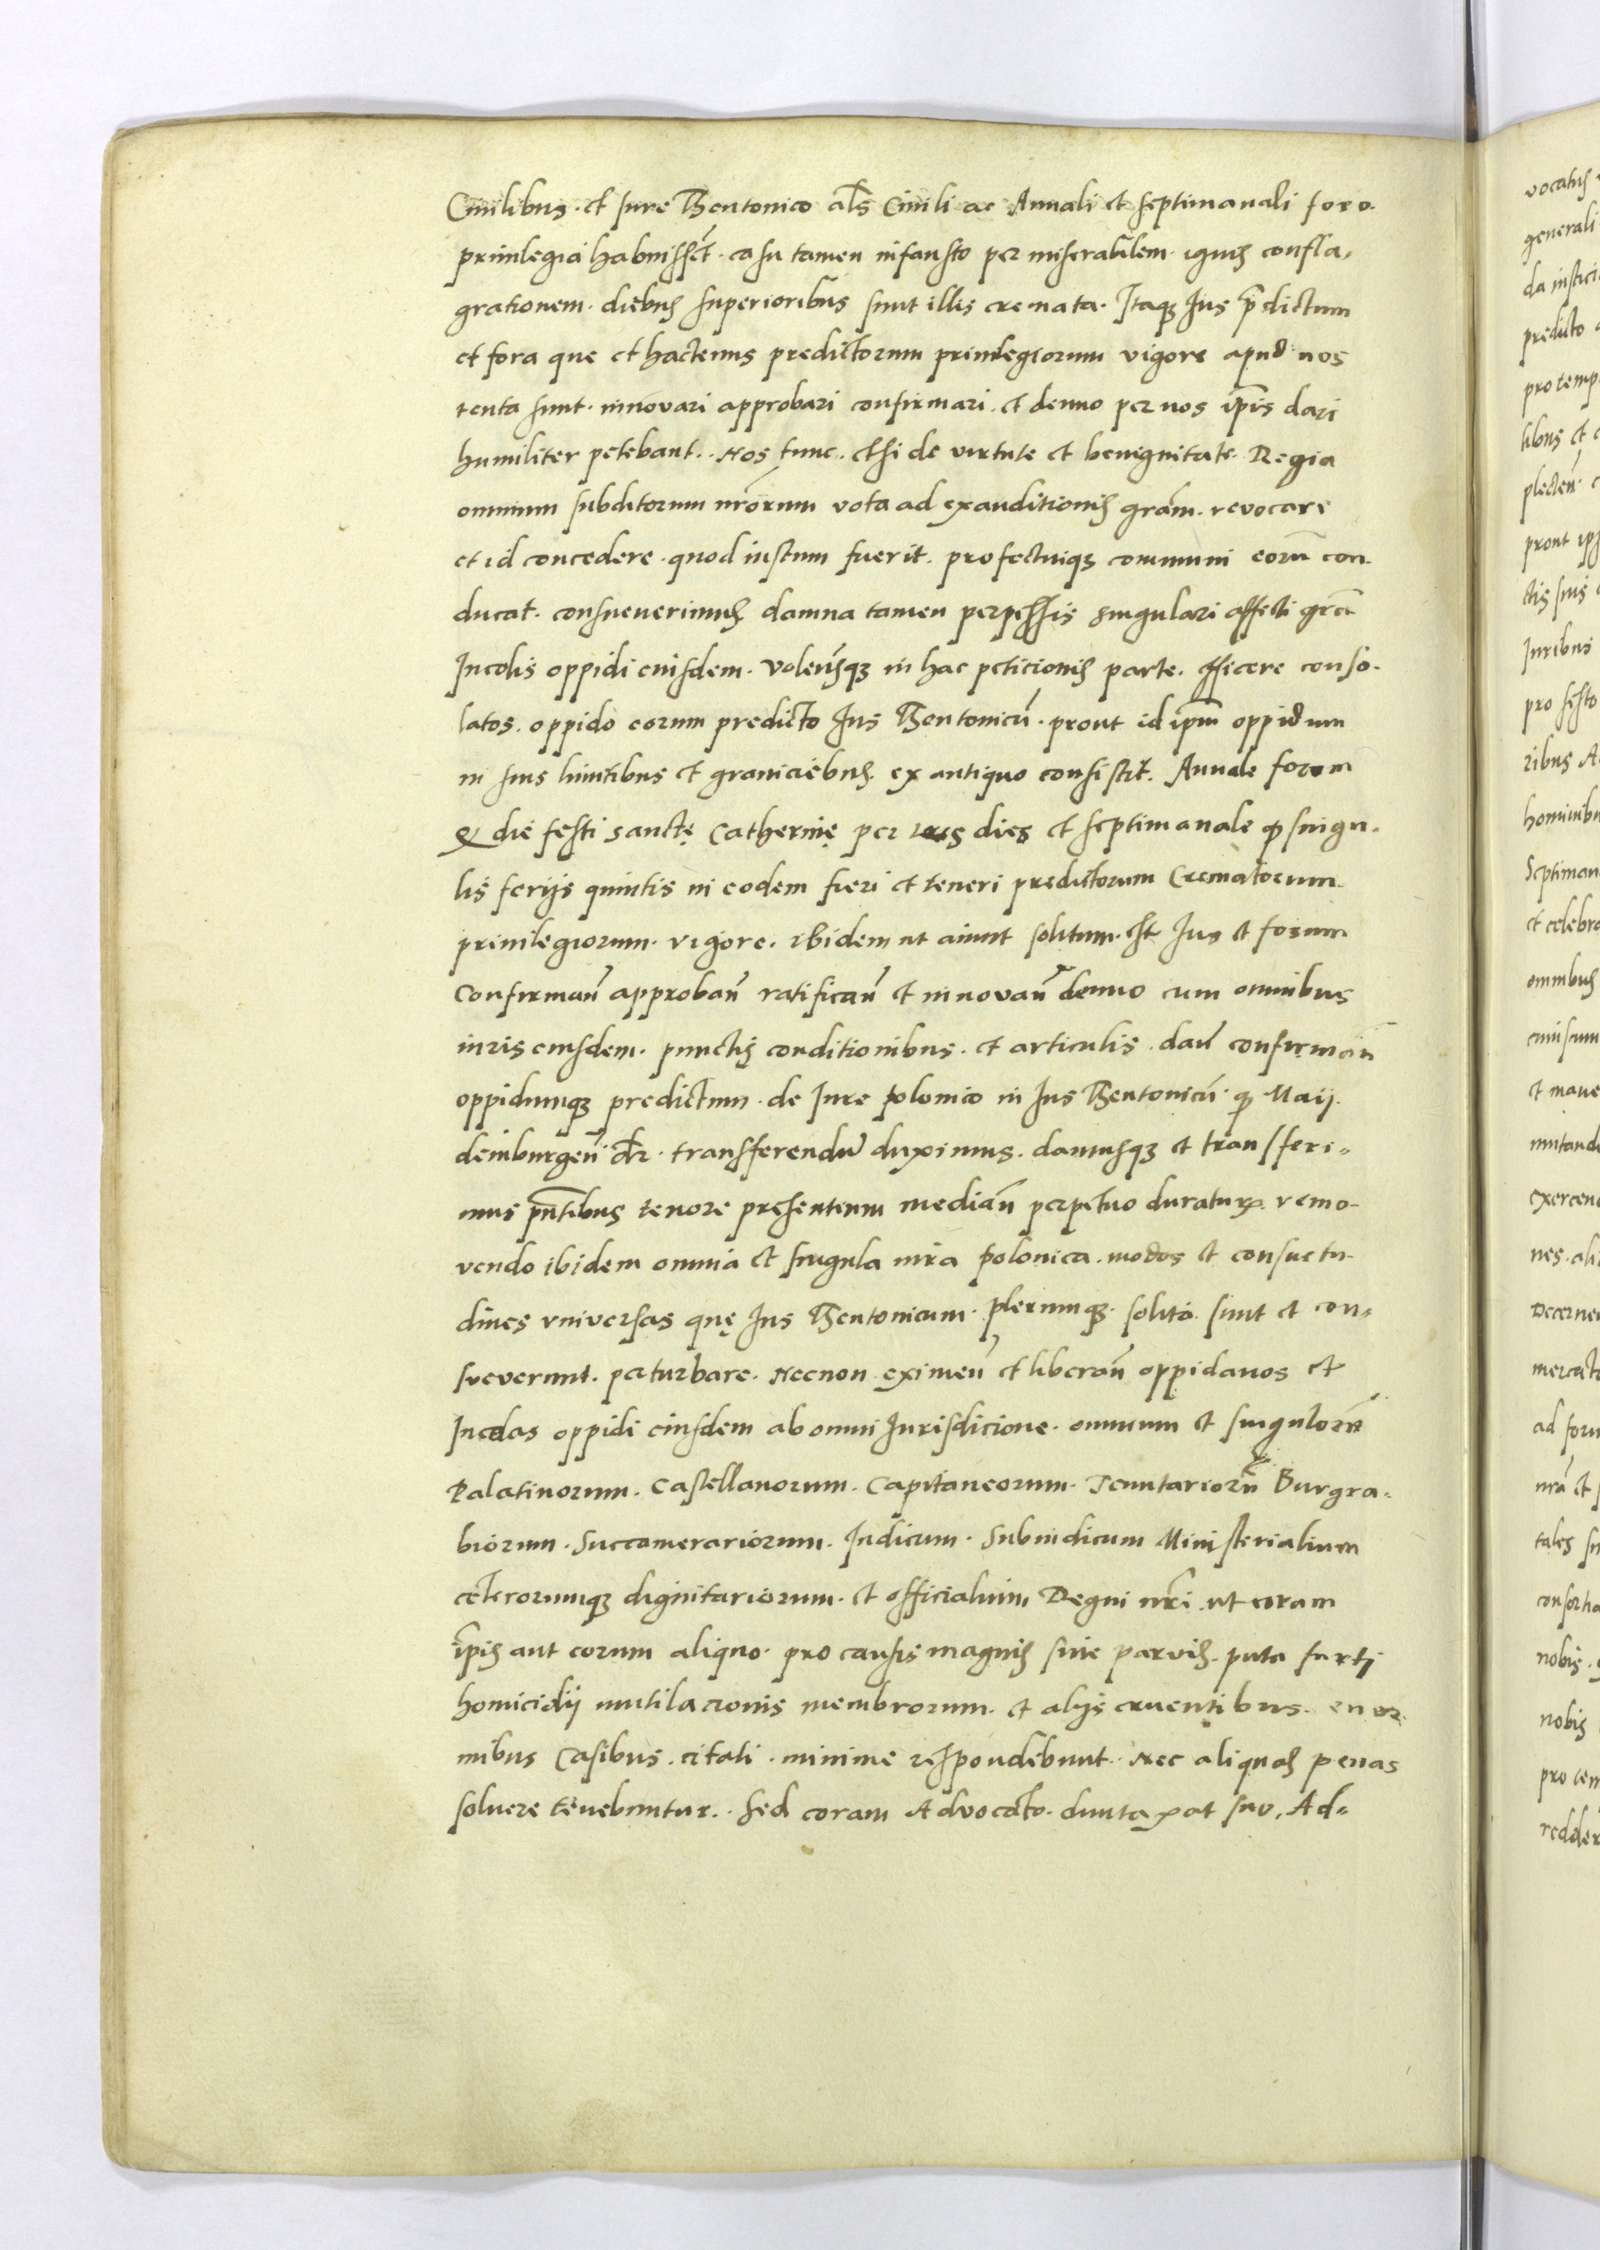 Civilibus. et Iure Thentonico als Civili ac Annali et septimanali foro.
privilegia habuissēt. casu tamen infausto per miserabilem. ignis confla,
grationem. diebus superioribus sunt illis cremata. Itaqꝫ Ius p̄dictum
et fora que et hactenus predictorum privilegiorum vigore apud nos
tenta sunt. innovari approbari confirmari. et denuo per nos ip̄is dari
humiliter petebant. Nos tunc. etsi de virtute et benignitate. Regia
omnium subditorum nrōrum vota ad exauditionis grām. revocare
et id concedere. quod iustum fuerit. profectuiqꝫ communi eorū con-
ducat. consueverimus damna tamen perpessis singulari affecti grā
Incolis oppidi eiusdem. volen̄sqꝫ in hac peticionis parte. efficere conso-
latos. oppido eorum predicto Ius Thentonicū. prout id ip̄m oppidum
in suis limitibus et graniciebus. ex antiquo consistit. Annale forum
die festi sanctę Catherinę per dies et septimanale ꝓ singu-
lis ferijs quintis in eodem fieri et teneri predictorum Crematorum
privilegiorum. vigore. ibidem ut aiunt solitum. est Ius et forum
Confirman̄ approban̄ ratifican̄ et innovan̄ denuo cum omnibus
iuris eiusdem. punctis conditionibus. et articulis. dan̄ confirman̄
oppidumqꝫ predictum. de Iure polonico in Ius Thentonicū qꝫ Maij.
deinburgen̄ dr̄. transferendū duximus. damusqꝫ et transferi-
mus pn̄tibus tenore presentium median̄ perpetuo duraturꝝ. remo-
vendo ibidem omnia et singula iura polonica. modos et consuetu-
dines vniversas quę Ius Thentonicum. plerumqꝫ. solita sunt et con-
sueverunt. perturbare. Necnon eximen̄ et liberan̄ oppidanos et
Incolas oppidi eiusdem ab omni Iurisdicione. omnium et singulorū
Palatinorum. Castellanorum. Capitaneorum. Tenutariorū Burgra-
biorum. Succamerariorum. Iudicum. Subiudicum Ministerialium
ceterorumqꝫ dignitariorum. et officialium Regni nri. ut coram
ip̄is aut eorum aliquo. pro causis magnis sive parvis. puta furti
homicidij mutilacionis membrorum. et alijs cruentibus. enor-
mibus Casibus. citati. minime respondebunt. Nec aliquas penas
soluere tenebuntur. sed coram Advocato. duntaxat suo. Ad-